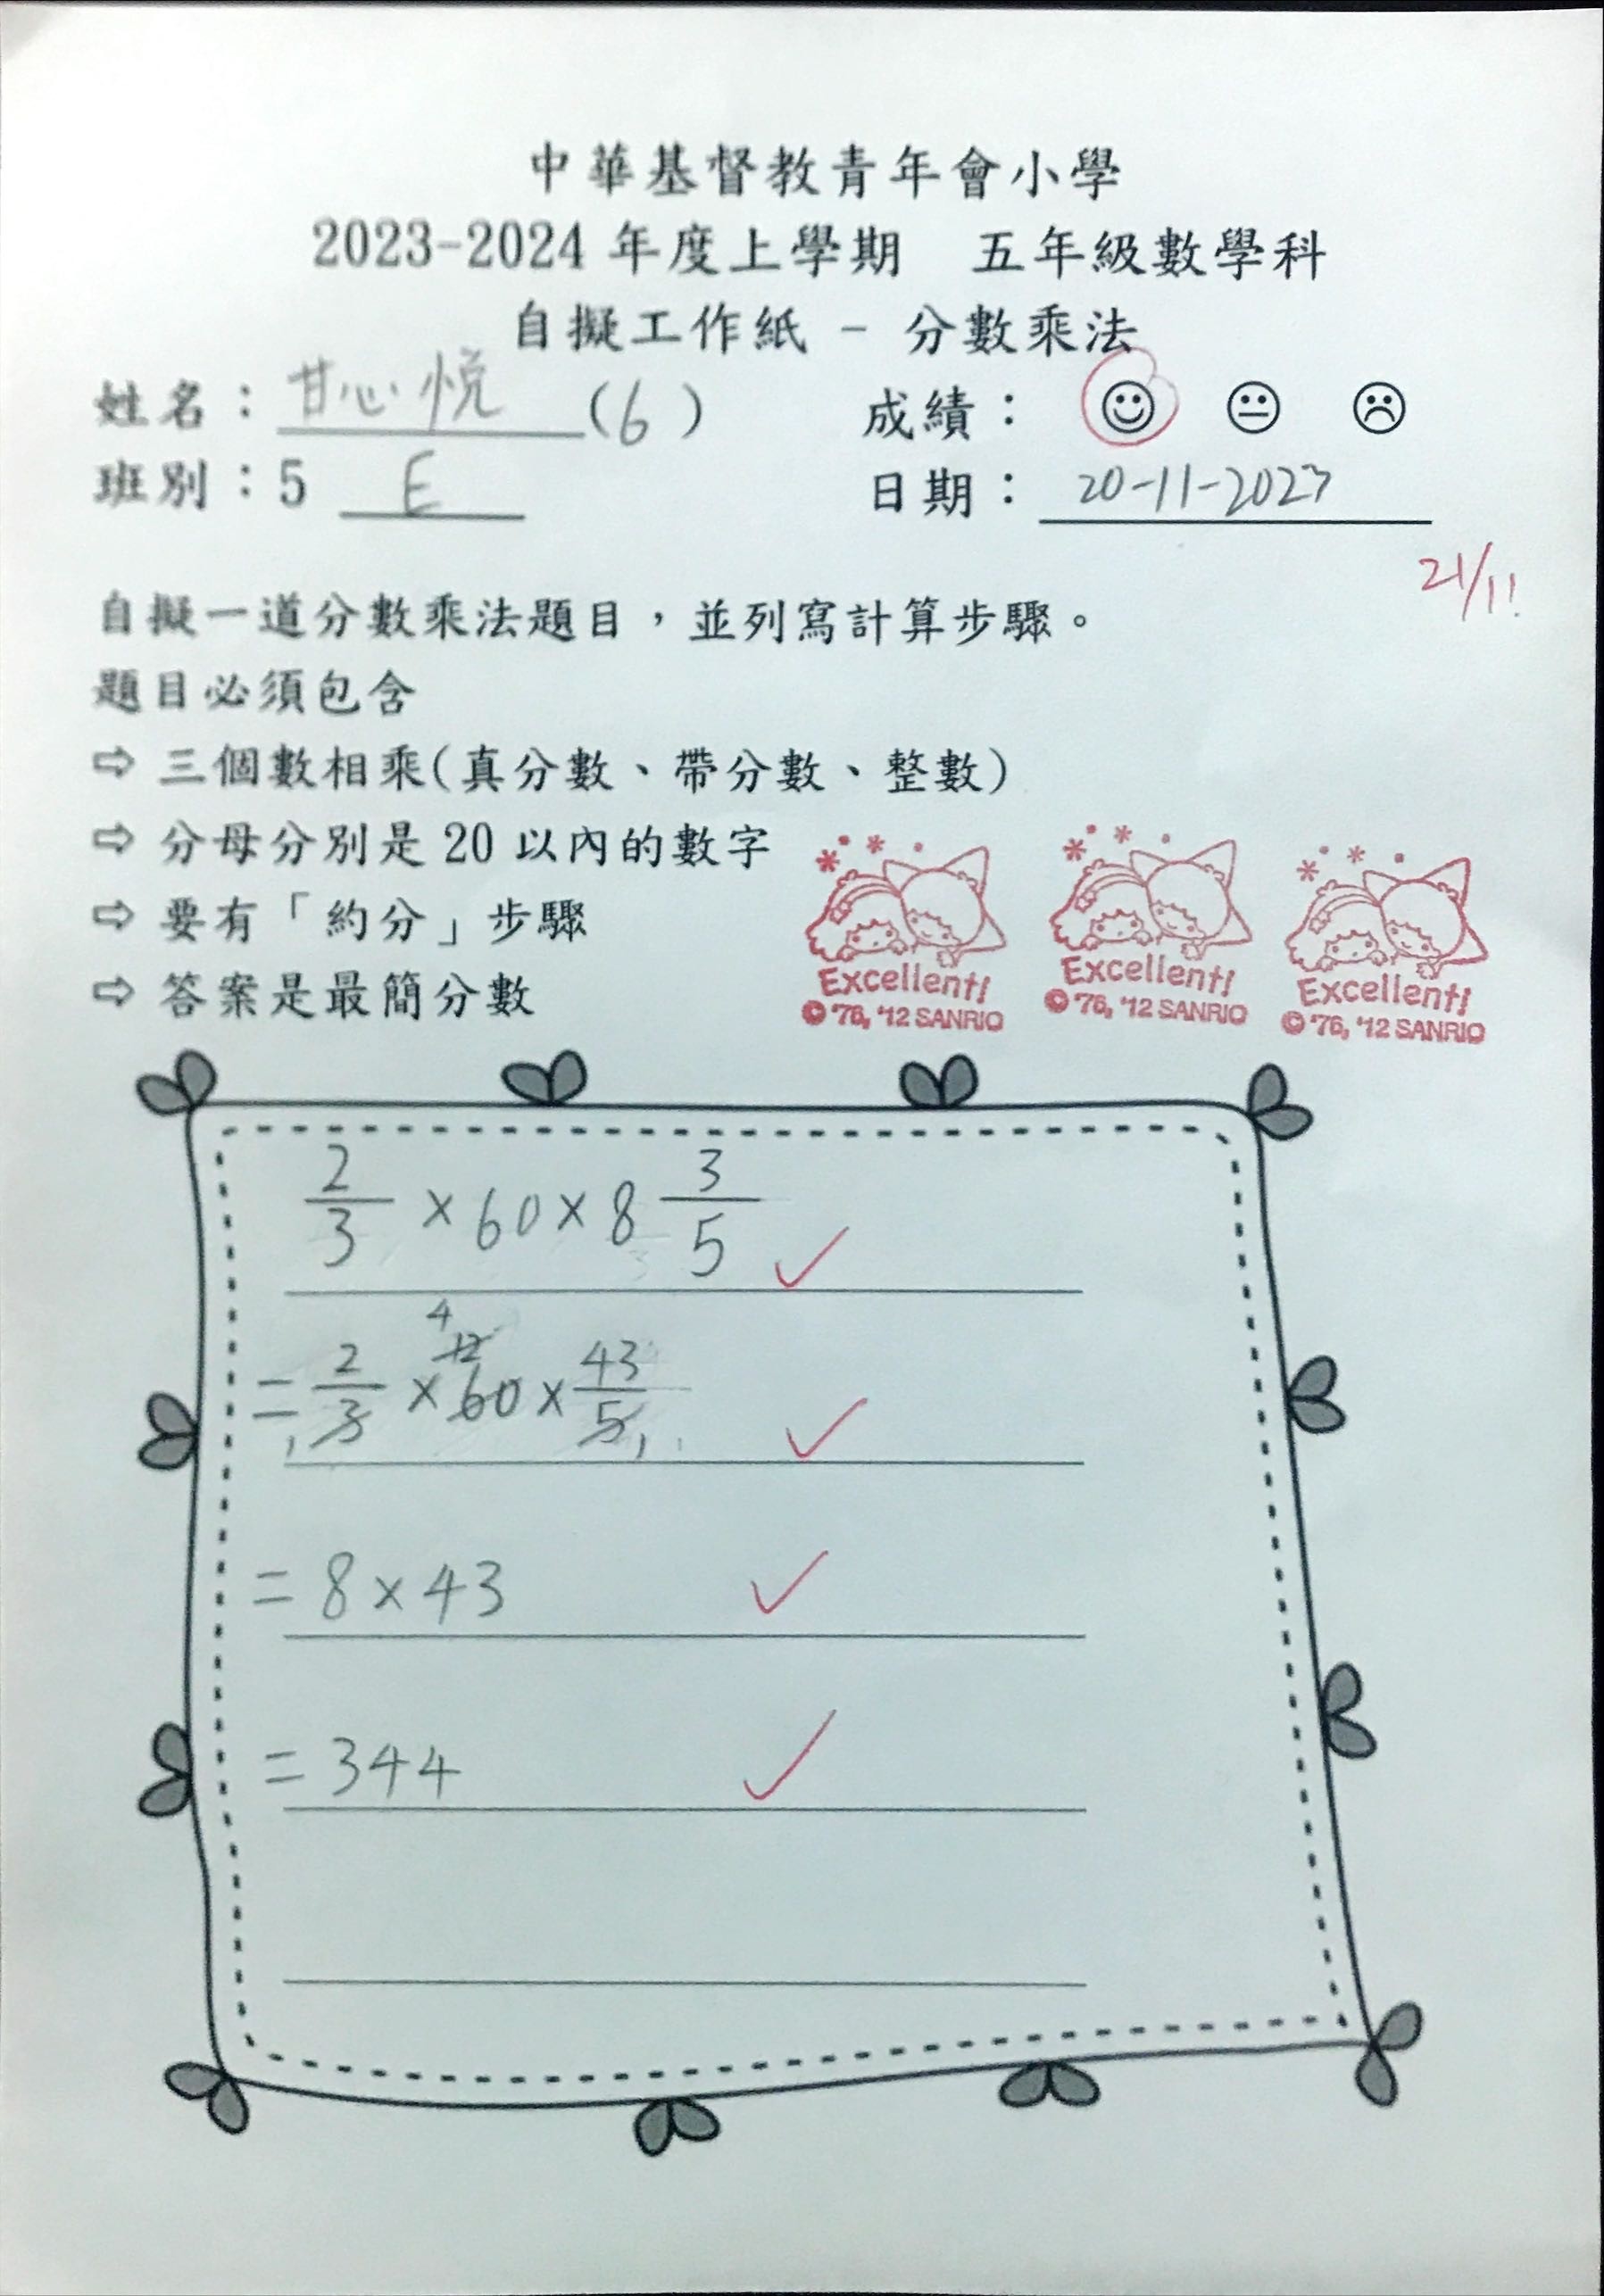 中華基督教青年會小學
2023-2024 年度上學期 五年級數學科
自擬工作紙 - 分數乘法
姓名：甘心悅 (6) 成績：
班別：5 E 日期：20-11-2023
21/11
自擬一道分數乘法題目，並列寫計算步驟。
題目必須包含
⇨ 三個數相乘(真分數、帶分數、整數)
⇨ 分母分別是 20 以內的數字
⇨ 要有「約分」步驟
⇨ 答案是最簡分數
Excellent! Excellent! Excellent!
© '76, '12 SANRIO © '76, '12 SANRIO © '76, '12 SANRIO
2/3 × 60 × 8 3/5
4
12
= 2/3 × 60 × 43/5
1 1
= 8 × 43
= 344